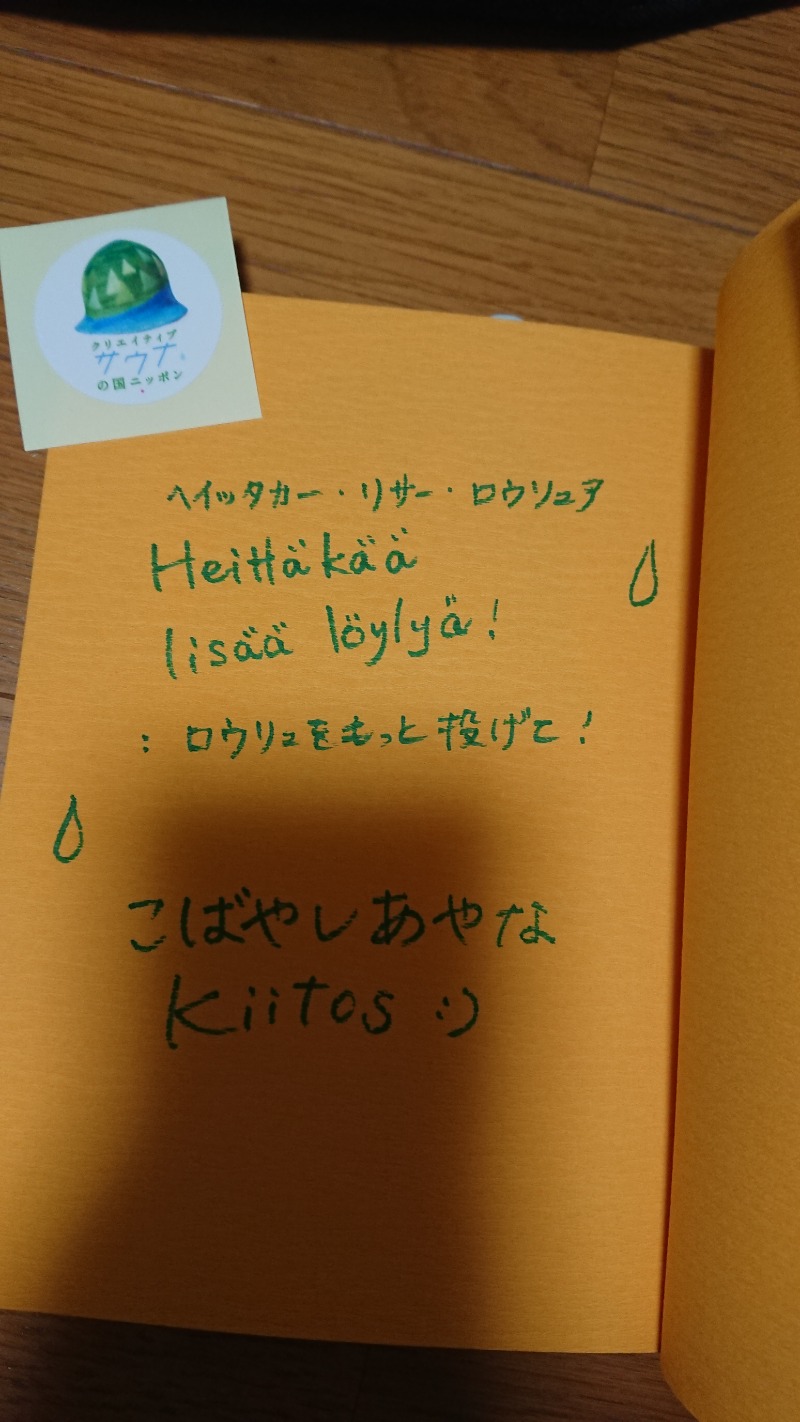 クリエイティブ
サウナ
の国ニッポン
ヘイッタカー・リサー・ロウリュア
Heittäkää
lisää löylyä!
: ロウリュをもっと投げて!
こばやしあやな
Kiitos :)